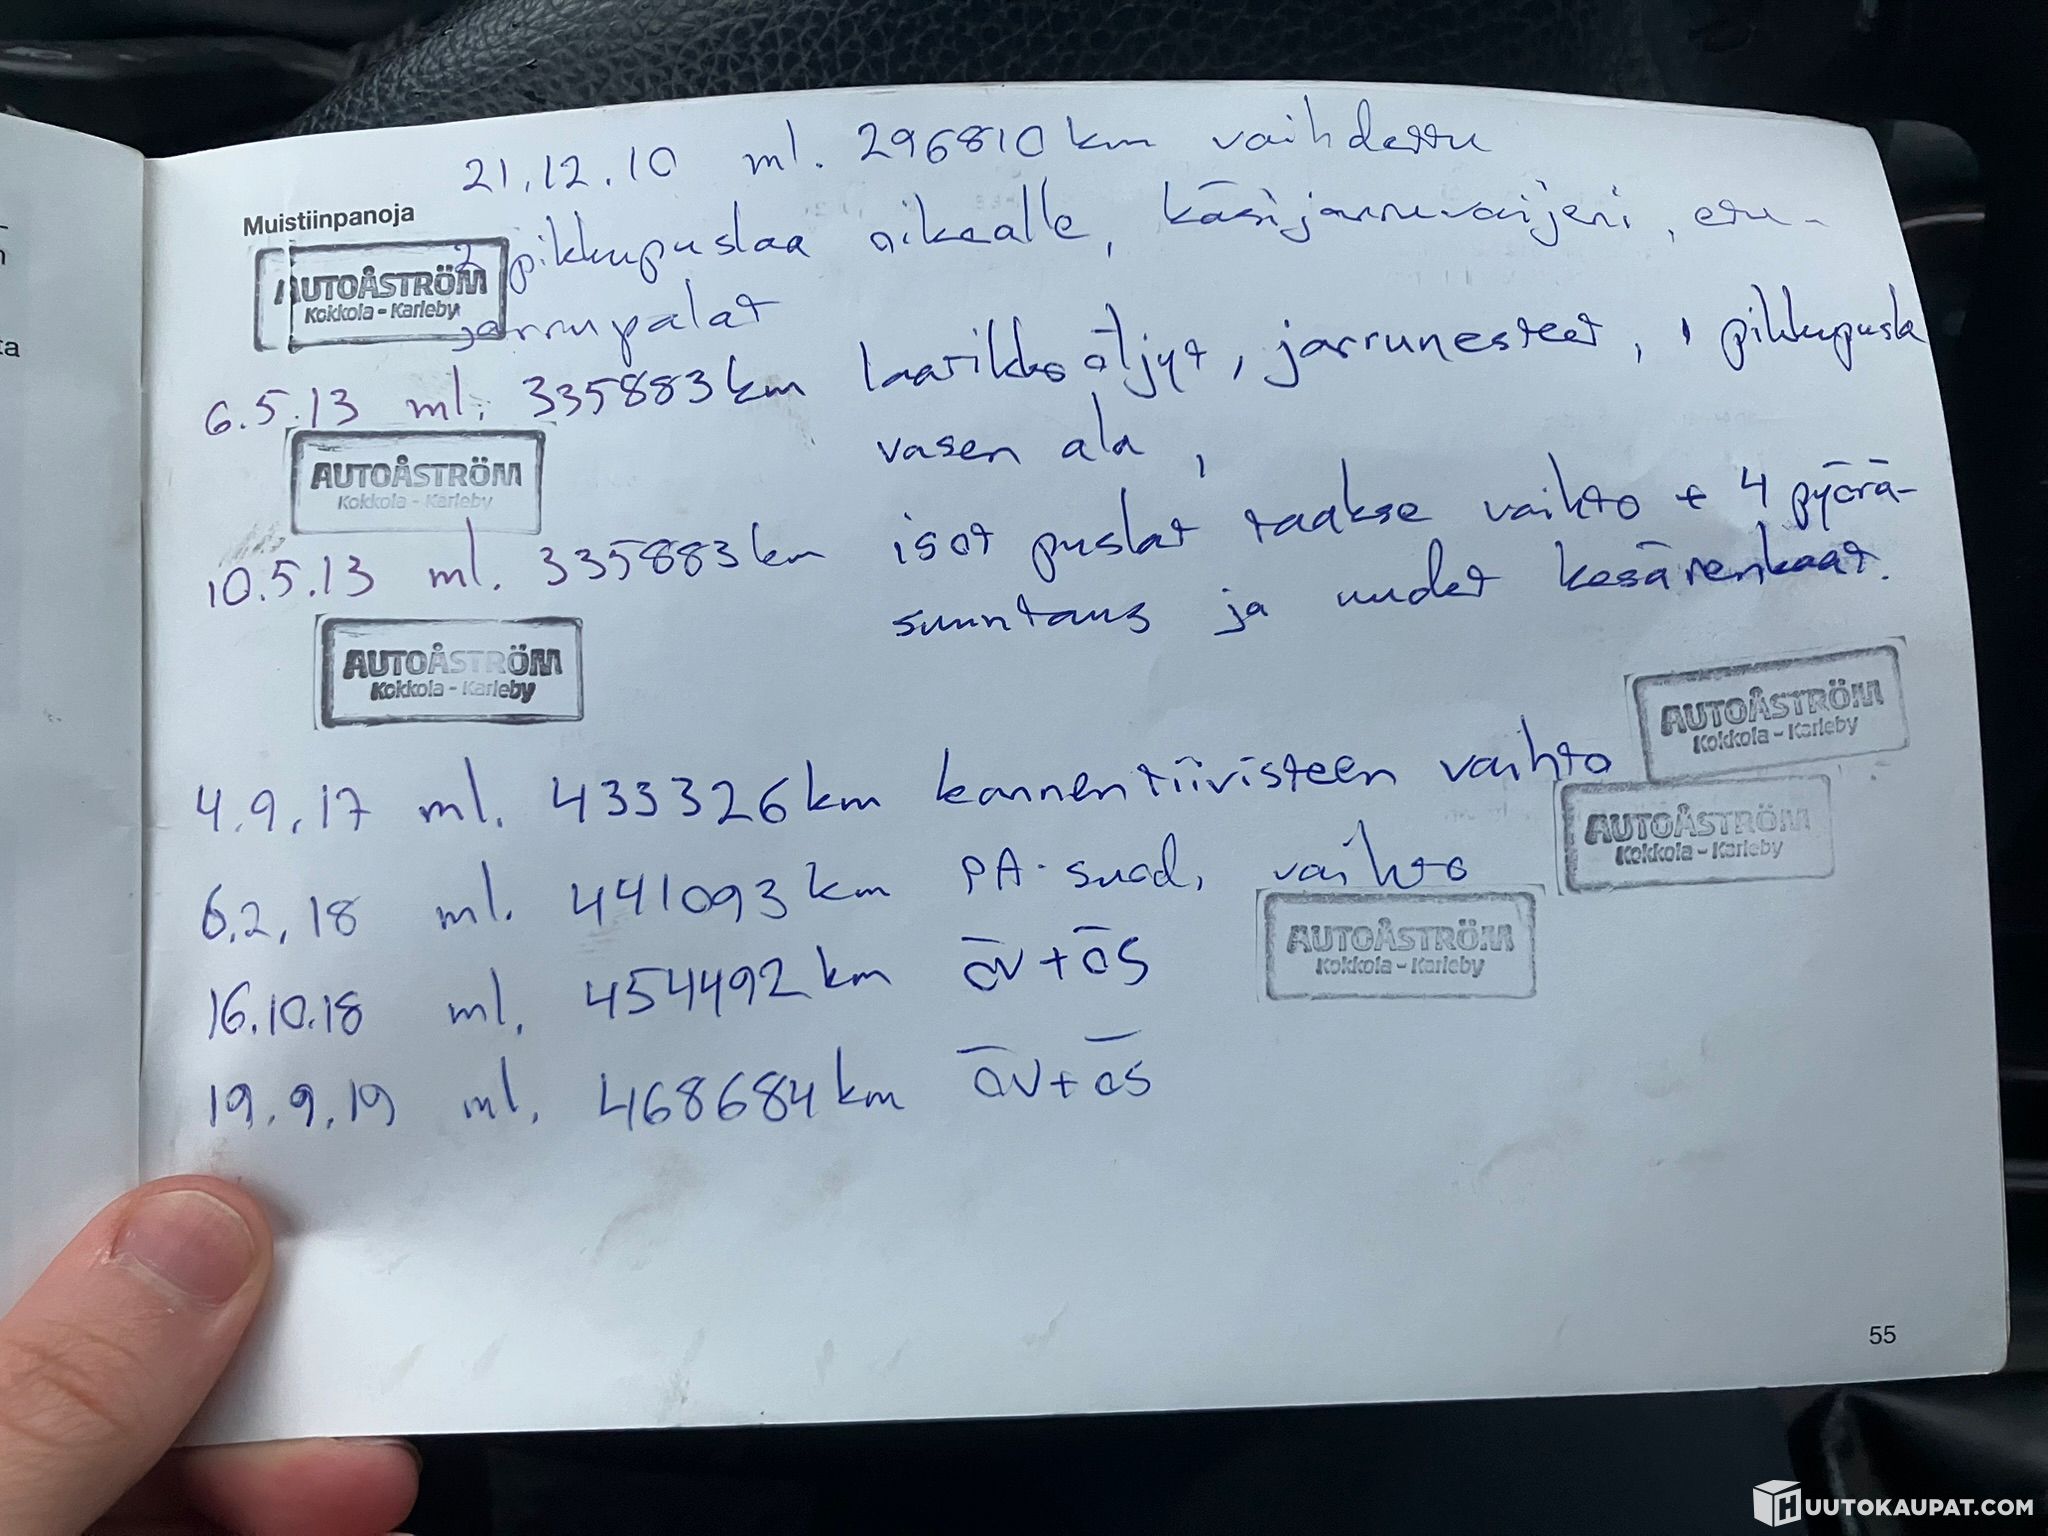 21.12.10 ml. 296810 km vaihdettu
Muistiinpanoja
2 pikkupuslaa oikealle, käsijarruvaijeri, etu-
AUTOÅSTRÖM
Kokkola - Karleby
jarrupalat
6.5.13 ml. 335883 km laatikkoöljyt, jarrunesteet, 1 pikkupusla
vasen ala,
AUTOÅSTRÖM
Kokkola - Karleby
10.5.13 ml. 335883 km isot puslat taakse vaihto + 4 pyörä-
suuntaus ja uudet kesärenkaat.
AUTOÅSTRÖM
Kokkola - Karleby
AUTOÅSTRÖM
Kokkola - Karleby
4.9.17 ml. 433326 km kannentiivisteen vaihto
AUTOÅSTRÖM
Kokkola - Karleby
6.2.18 ml. 441093 km PA-suod. vaihto
AUTOÅSTRÖM
Kokkola - Karleby
16.10.18 ml. 454492 km öv+ös
19.9.19 ml. 468684 km öv+ös
55
HUUTOKAUPAT.COM